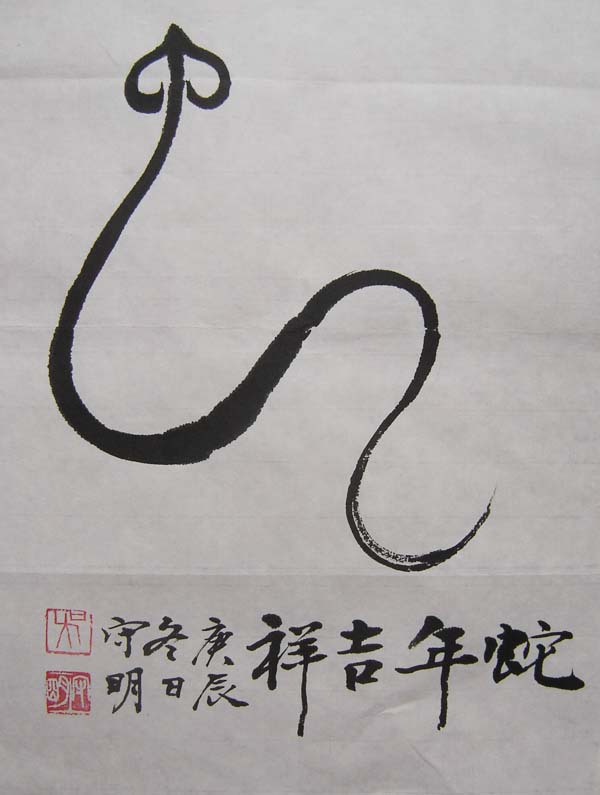 蛇年吉祥
庚辰
冬日
守明